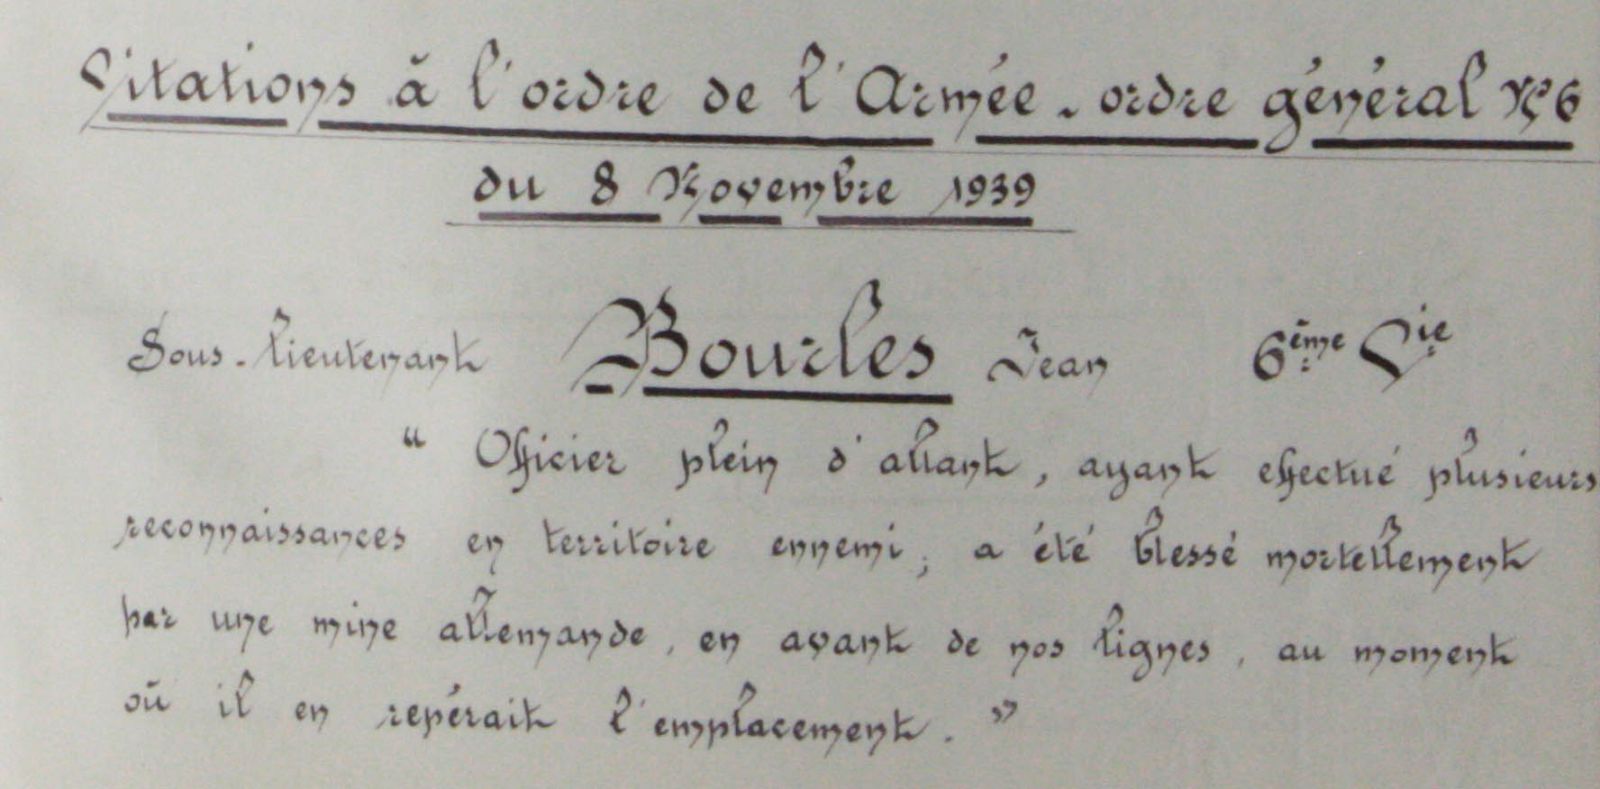 Citations à l'ordre de l'Armée. ordre général N° 6
du 8 Novembre 1939
Sous-lieutenant Bourles Jean 6ème Cie
“ Officier plein d'allant, ayant effectué plusieurs
reconnaissances en territoire ennemi; a été blessé mortellement
par une mine allemande, en avant de nos lignes, au moment
où il en repérait l'emplacement. ”